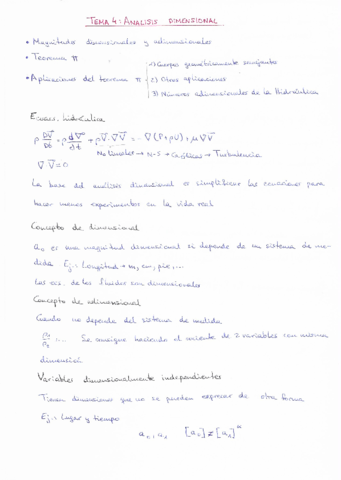 TEMA 4: ANALISIS DIMENSIONAL
• Magnitudes dimensionales y adimensionales
• Teorema π
• Aplicaciones del teorema π
1) Cuerpos geométricamente semejantes
2) Otras aplicaciones
3) Números adimensionales de la Hidráulica
Ecuac. hidráulica
ρ DV/Dt = ρ dV/dt + ρV·∇V = -∇(P+ρU) + μ∇V
No lineales → N-S → Caóticas → Turbulencia
∇V=0
La base del análisis dimensional es simplificar las ecuaciones para
hacer menos experimentos en la vida real
Concepto de dimensional
a₁₁ es una magnitud dimensional si depende de un sistema de me-
dida Ej.: Longitud → m, cm, pie, ...
Las ecs. de los fluidos son dimensionales
Concepto de adimensional
Cuando no depende del sistema de medida
... Se consigue haciendo el cociente de 2 variables con misma
dimensión
Variables dimensionalmente independientes
Tienen dimensiones que no se pueden expresar de otra forma
Ej.: Lugar y tiempo